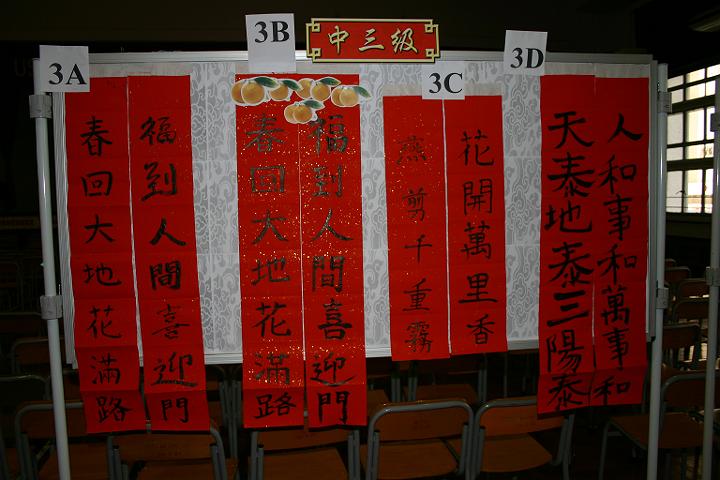 中三級
3A
福到人間喜迎門
春回大地花滿路
3B
福到人間喜迎門
春回大地花滿路
3C
花開萬里香
燕剪千重霧
3D
人和事和萬事和
天泰地泰三陽泰